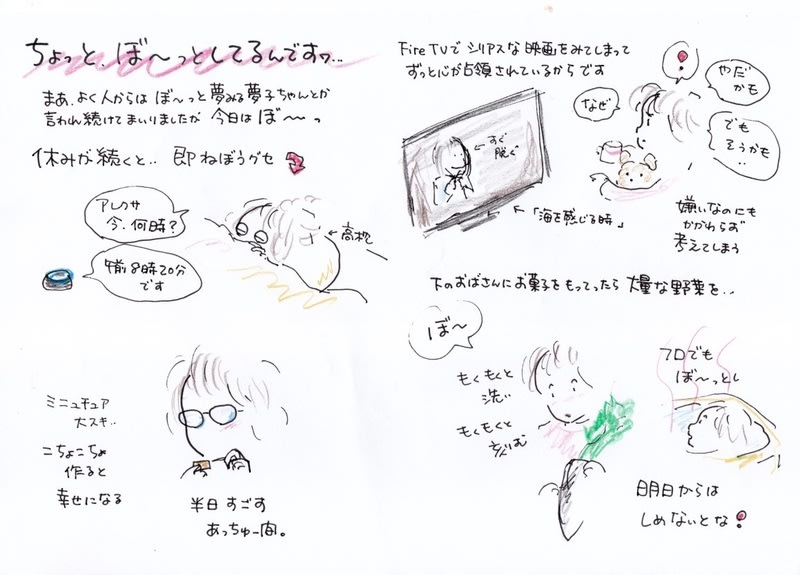 ちょっと、ぼ〜っとしてるんですヮ…
まあ、よく人からは ぼ〜っと夢みる夢子ちゃんとか
言われ続けてまいりましたが 今日は ぼ〜っ
休みが続くと.. 即ねぼうグセ
アレクサ
今、何時?
←高枕
午前8時20分
です
ミニュチュア
大スキ..
こちょこちょ
作ると
幸せになる
半日 すごす
あっちゅー間。
Fire TVで シリアスな 映画をみてしまって
ずっと心が占領されているからです
!
やだ
かも
なぜ
でも
そうかも
..
←すぐ
脱ぐ
←「海を感じる時」
嫌いなのにも
かかわらず
考えてしまう
下のおばさんにお菓子をもってったら 大量な野菜を..
ぼ〜
もくもくと
洗い
もくもくと
刻む
フロでも
ぼ〜っとし
明日からは
しめないとな!